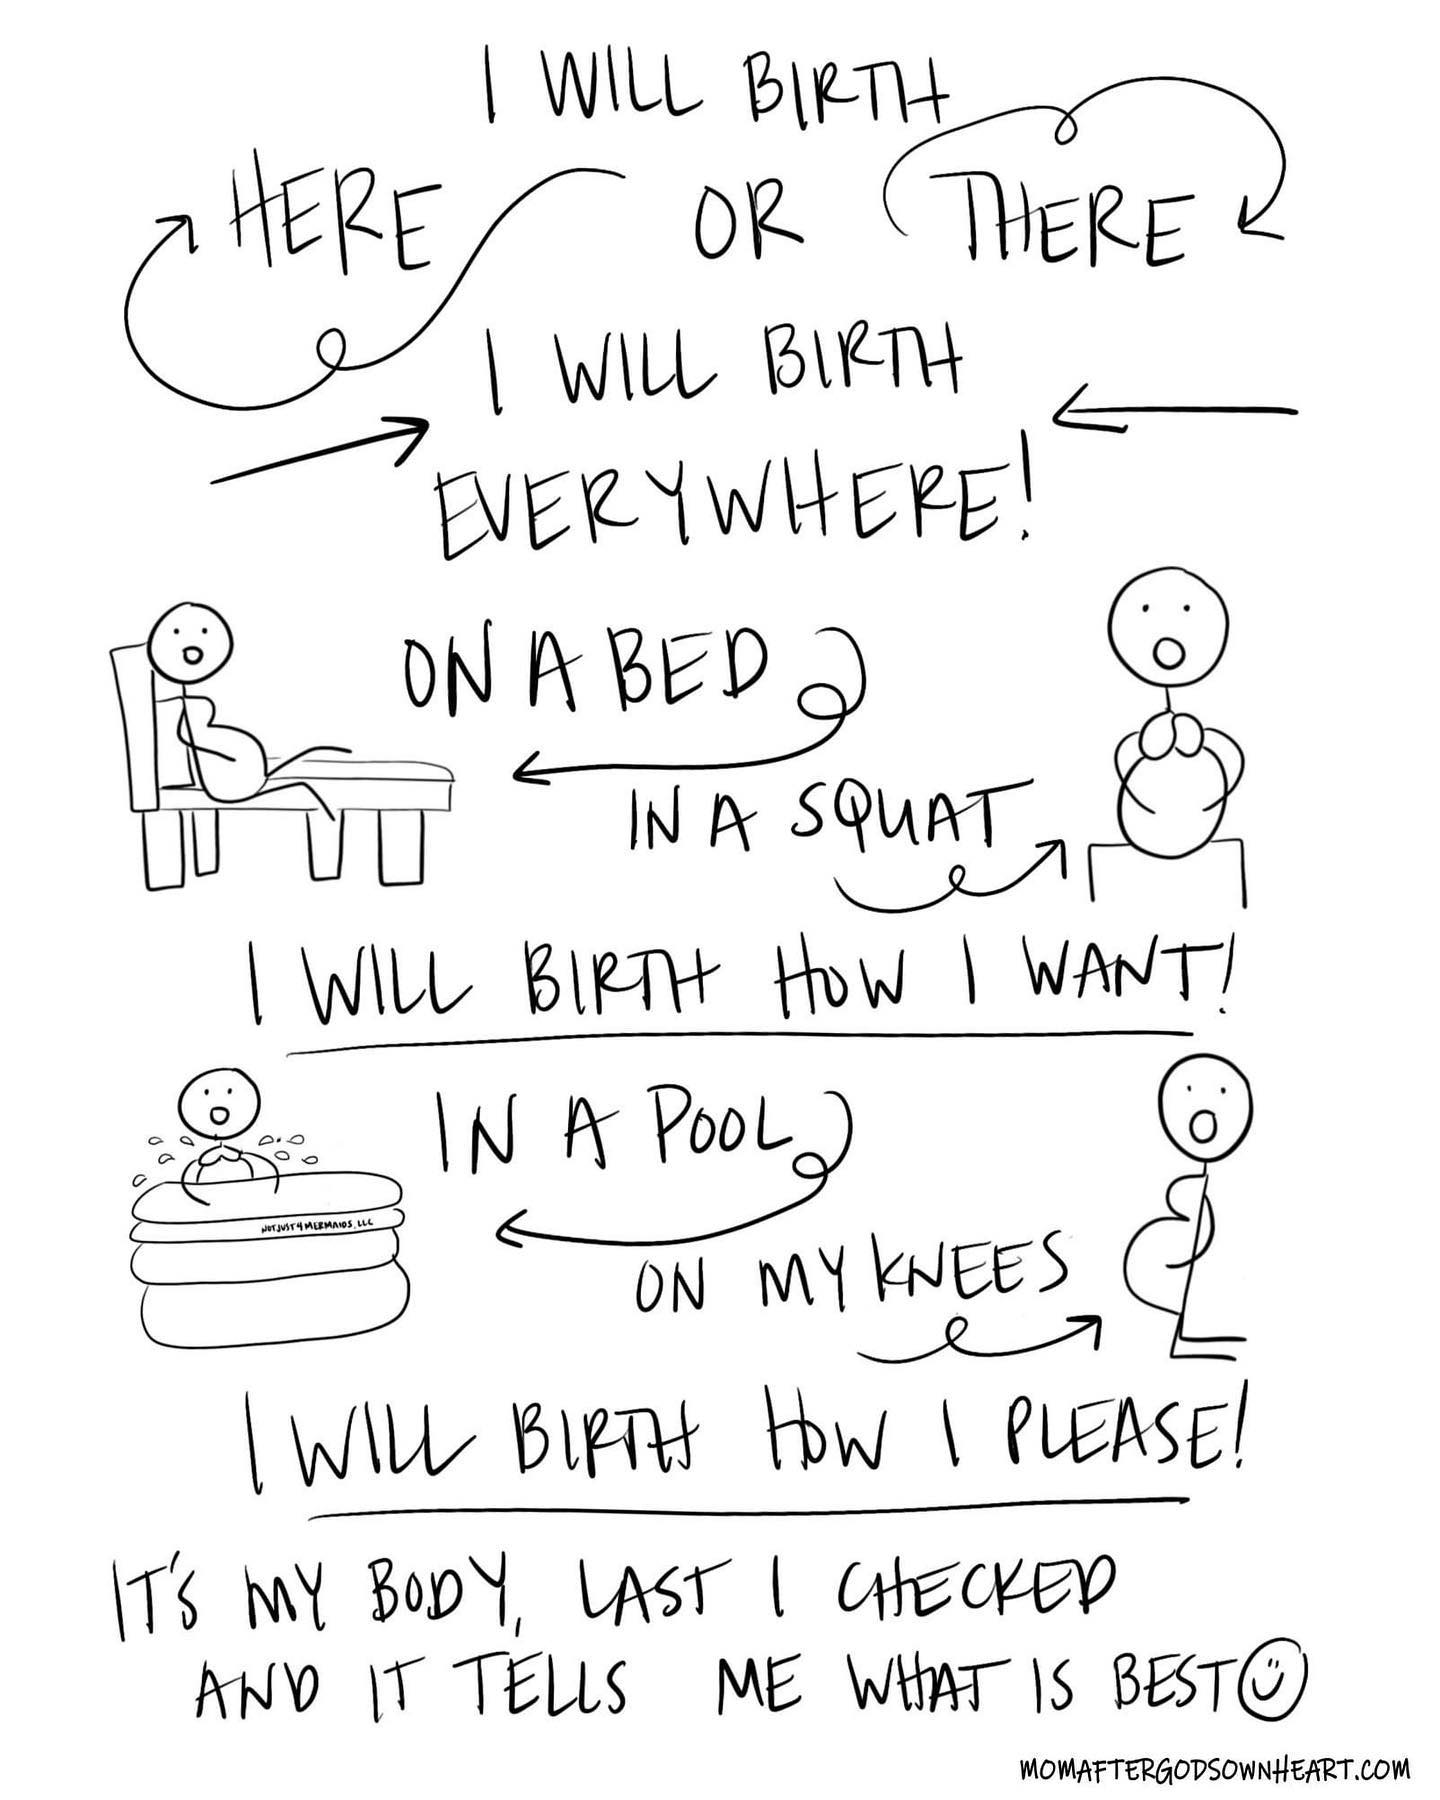 I WILL BIRTH
HERE OR THERE
I WILL BIRTH
EVERYWHERE!
ON A BED
IN A SQUAT
I WILL BIRTH HOW I WANT!
IN A POOL
NOTJUST4MERMAIDS, LLC
ON MY KNEES
I WILL BIRTH HOW I PLEASE!
IT'S MY BODY, LAST I CHECKED
AND IT TELLS ME WHAT IS BEST
MOMAFTERGODSOWNHEART.COM